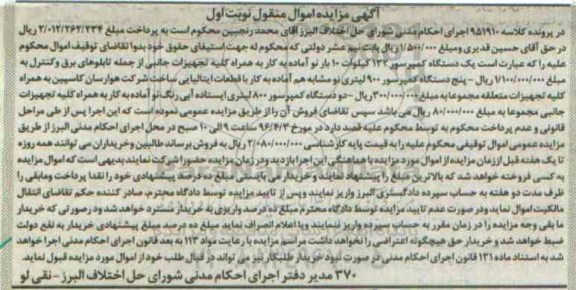 آگهی مزایده اموال منقول نوبت اول
در پرونده کلاسه 951910 اجرای احکام مدنی شورای حل اختلاف البرز آقای محمد رنجبین محکوم است به پرداخت مبلغ 2/012/262/234 ریال
در حق آقای حسین قدیری ومبلغ 1/500/000 ریال بابت نیم عشر دولتی که محکوم له جهت استیفای حقوق خود بدوا تقاضای توقیف اموال محکوم
علیه را که عبارت است یک دستگاه کمپرسور 132 کیلوات 10 بار نو آماده به کار به همراه کلیه تجهیزات جانبی از جمله تابلوهای برق وکنترل به
مبلغ 1/100/000/000 ریال - پنج دستگاه کمپرسور 900 لیتری نو مشابه هم آماده به کار با قطعات ایتالیایی ساخت شرکت هوارسان کاسپین به همراه
کلیه تجهیزات متعلقه مجموعا به مبلغ 000/000 ریال - دو دستگاه کمپرسور 800 لیتری ایستاده آبی رنگ نو آماده به کار به همراه کلیه تجهیزات
جانبی مجموعا به مبلغ 80/000/000 ریال می باشد سپس تقاضای فروش آن را از طریق مزایده عمومی نموده است که این اجرا پس از طی مراحل
قانونی و عدم پرداخت محکوم به توسط محکوم علیه قصد دارد در مورخ 96/4/3 ساعت 9 الی 10 صبح در محل اجرای احکام مدنی البرز از طریق
مزایده عمومی اموال توقیفی محکوم علیه را به قیمت پایه کارشناسی 2/080/000/000 ریال به فروش برساند طالبین وخریداران می توانند همه روزه
تا یک هفته قبل از زمان مزایده از اموال مورد مزایده با هماهنگی این اجرا بازدید ودر زمان مزایده حضور اشرکت نمایند بدیهی است که اموال مزایده
به کسی فروخته خواهد شد که بالاترین مبلغ را پیشنهاد نمایند و خریدار می بایست فی المجلس ده درصد پیشنهادی خود را نقدا پرداخت ومابقی را
ظرف مدت دو هفته به حساب سپرده دادگستری البرز واریز نمایند وپس از تایید مزایده توسط دادگاه محترم، صادر کننده حکم تقاضای انتقال
مالکیت اموال نماید ودر صورت عدم تایید مزایده توسط دادگاه محترم مبلغ ده درصد واریزی به خریدار مسترد خواهد شد ودر صورتی که خریدار
ما بقی وجه مزایده را در زمان مقرر به حساب سپرده واریز ننماید ویا اعلام انصراف نماید مبلغ ده درصد مبلغ پیشنهادی خریدار به نفع دولت
ضبط خواهد شد و خریدار حق هیچگونه اعتراضی را نخواهد داشت مراسم مزایده با رعایت مواد 113 به بعد قانون اجرای احکام مدنی اجرا خواهد
شد به استناد ماده 131 قانون اجرای احکام مدنی در صورت نبود خریدار طلبکار نیز می تواند در قبال طلب خود از اموال مورد مزایده قبول نماید.
370 مدیر دفتر اجرای احکام مدنی شورای حل اختلاف البرز - نقی لو